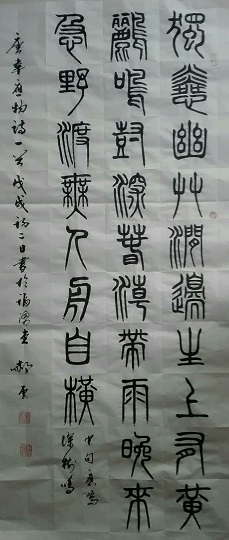 獨憐幽艸澗邊生上有黃
鸝鳴樹深春潮帶雨晚來
急野渡無人舟自橫
中句應為
深樹鳴
唐韋應物詩一首戊戌端二日書於